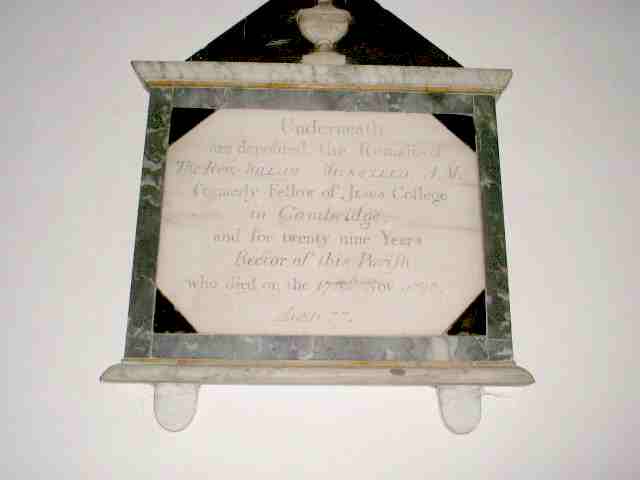 Underneath
are deposited the Remains of
The Rev. A.M.
formerly Fellow of Jesus College
in Cambridge,
and for twenty nine Years
Rector of this Parish
who died on the Nov